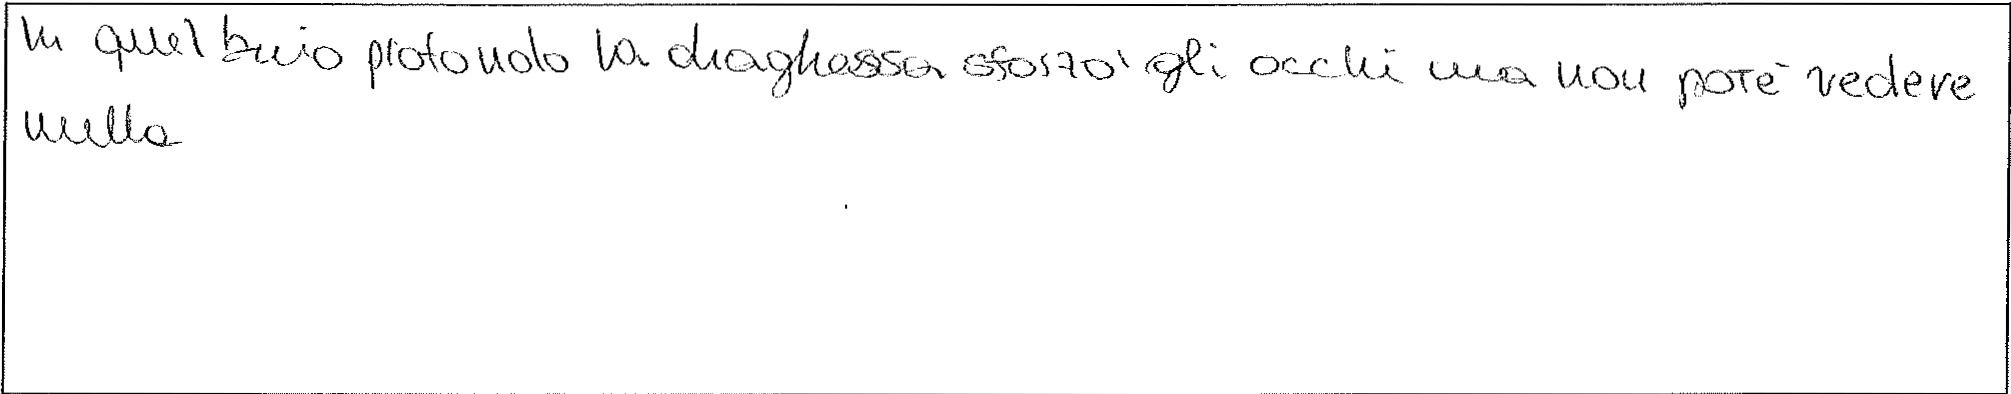 In quel buio profondo la draghessa sforzò gli occhi ma non potè vedere
nulla